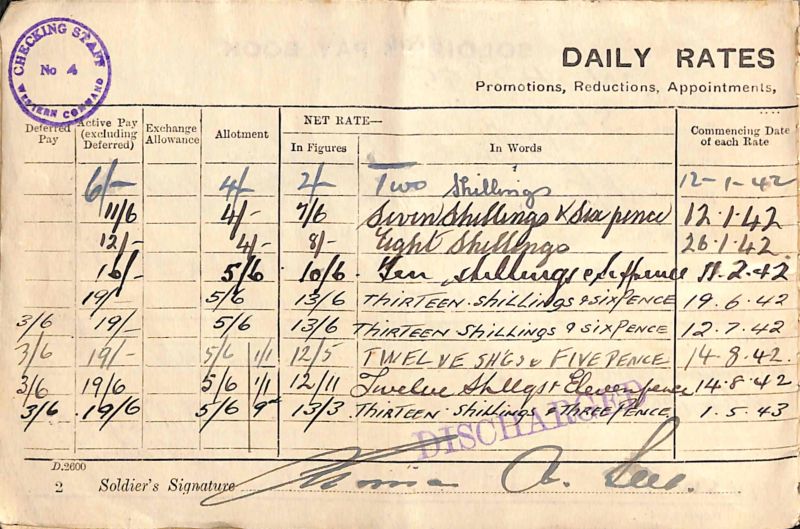 CHECKING STAFF
No 4
WESTERN COMMAND
DAILY RATES
Promotions, Reductions, Appointments,
Deferred Pay | Active Pay (excluding Deferred) | Exchange Allowance | Allotment | NET RATE— In Figures | In Words | Commencing Date of each Rate
6/- 4/- 2/- Two Shillings 12-1-42
11/6 4/- 7/6 Seven Shillings & Six pence 12.1.42
12/- 4/- 8/- Eight Shillings 26.1.42.
16/- 5/6 10/6 Ten shillings & Sixpence 11.2.42
19/- 5/6 13/6 THIRTEEN. SHILLINGS & SIXPENCE 19.6.42
3/6 19/- 5/6 13/6 THIRTEEN SHILLINGS & SIXPENCE 12.7.42
3/6 19/- 5/6 1/1 12/5 TWELVE SH'GS & FIVE PENCE 14.8.42.
3/6 19/6 5/6 1/1 12/11 Twelve Shllgs & Elevenpence 14.8.42
3/6 19/6 5/6 9d 13/3 THIRTEEN. SHILLINGS & THREEPENCE 1.5.43
DISCHARGED
D.2600
2 Soldier's Signature A.